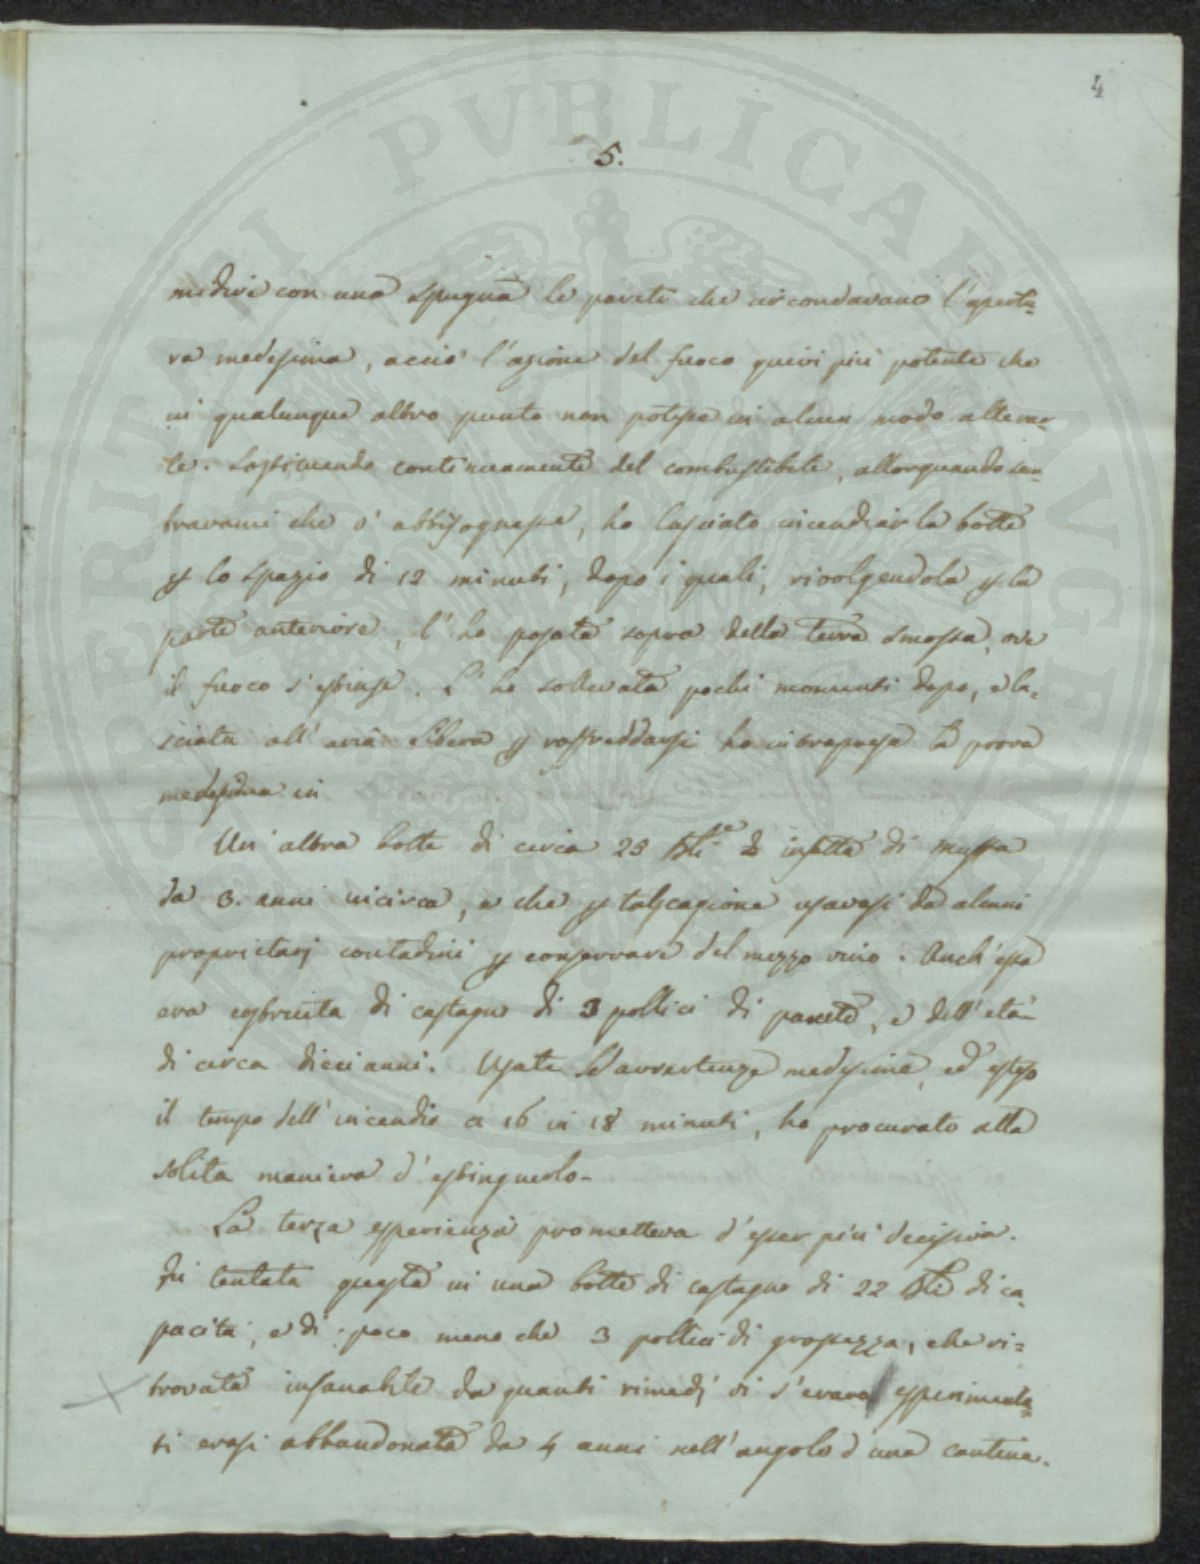 4
5.
midire con una spugna le pareti che circondavano l'apertu=
ra medesima, acciò l'azione del fuoco quivi più potente che
in qualunque altro punto non potesse in alcun modo alterar=
le. Sostituendo continuamente del combustibile, allorquando sem=
bravami che v'abbisognasse, ho lasciato incendiar la botte
p lo spazio di 12 minuti, dopo i quali, rivolgendola p la
parte anteriore, l'ho posata sopra della terra smossa, ove
il fuoco s'estinse. L'ho sollevata pochi momenti dopo, e la=
sciata all'aria libera p raffreddarsi ho intrapresa la prova
medesima in
Un'altra botte di circa 23 infetta di muffa
da 3. anni incirca, e che p tal cagione usavasi da alcuni
proprietarj contadini p conservare del mezzo vino. Anch'essa
era costruita di castagno di 3 pollici di parete, e dell'età
di circa dieci anni. Usate le avvertenze medesime, ed esteso
il tempo dell'incendio a 16 in 18 minuti, ho procurato alla
solita maniera d'estinguerlo.
La terza esperienza prometteva d'esser più decisiva.
Fu tentata questa in una botte di castagno di 22 di ca=
pacità, e di poco meno che 3 pollici di grossezza, che ri=
trovata insanabile da quanti rimedj vi s'erano esperimenta=
ti erasi abbandonata da 4 anni nell'angolo d'una cantina.
PERITATI PVBLICAE AVGEN